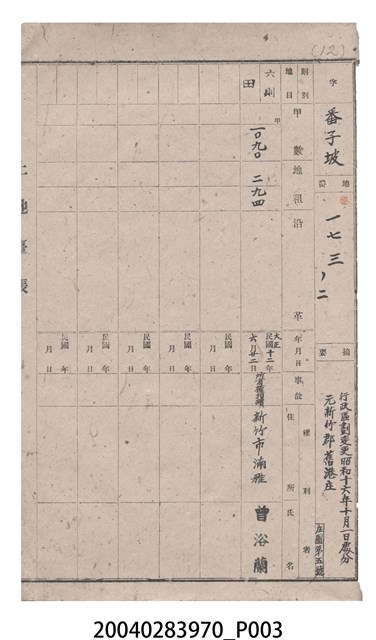 (12)
字 番子坡 地番 一七三ノ二 摘要
行政區劃変更昭和十六年十月一日處分
元新竹郡舊港庄
庄圖第五號
則別 地目 甲數 地租 沿革 年月日 事故 權利者 住所 氏名
六則 田 甲 一〇九〇 二九四
大正 民國十二年六月廿二日
新竹市湳雅 曾浴蘭
民國 年 月 日
民國 年 月 日
民國 年 月 日
民國 年 月 日
民國 年 月 日
土地臺帳
20040283970_P003